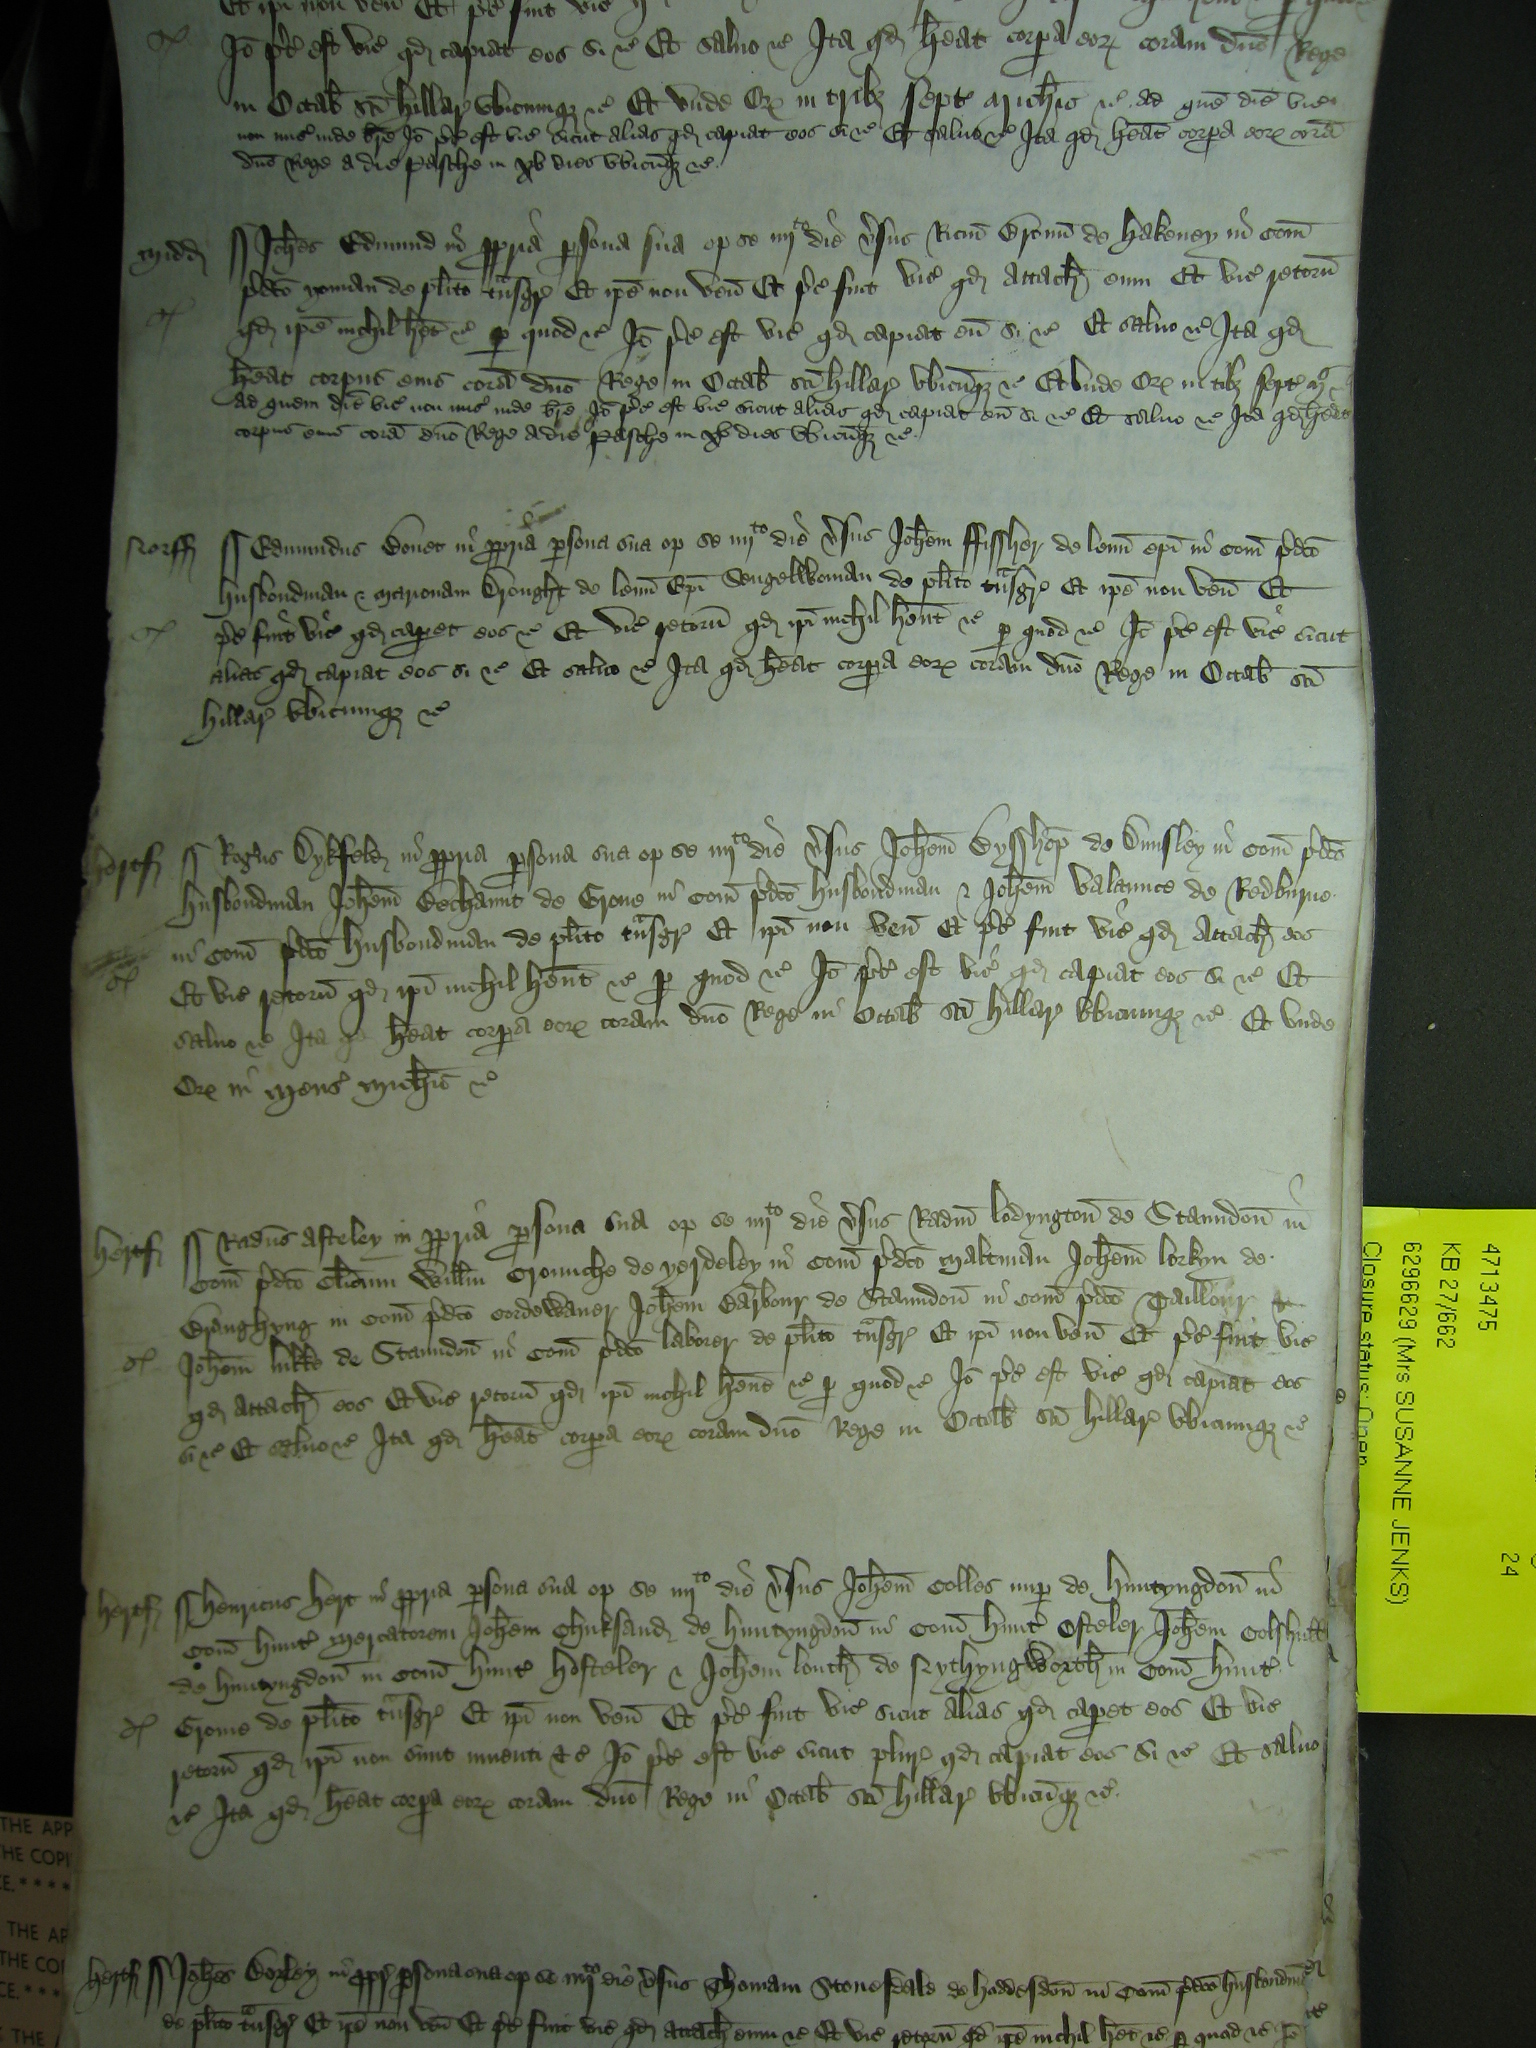 Jo p'c est vic' qd capiat eos si &c Et salvo &c Ita qd heat corpa eor coram dno Rege
in Octab sci Hillar ubicumq &c Et unde Or in tribz sept' Michis &c ad quē diē vic'
non mis' inde bre Jo p'c est vic' sicut alias qd capiat eos si &c Et salvo &c Ita qd heat corpa eor corā
dno Rege a die Pasche in xv dies ubicūq &c
Midd Johes Edmund in ppria psona sua op se iiijto die vsus Ricm Gromū de Hakeney in Com
pdco yoman de plito tnsgr Et ipe non ven Et p'c fuit vic' qd attach eum Et vic' retorn
qd ipe nichil het &c p quod &c Jo p'c est vic' qd capiat eū si &c Et salvo &c Ita qd
heat corpus eius corā dno Rege in Octab sci Hillar ubicūq &c Et unde Or in tibz sept' Mich
ad quem diē vic' non mis' inde bre Jo p'c est vic' sicut alias qd capiat eū si &c Et salvo &c Ita qd heat
corpus eius corā dno Rege a die Pasche in xv dies ubicūq &c
Norff Edmundus in ppria psona sua op se iiijto die vsus Johem ffissher de lenn epi in Com pdco
husbondman & Marionam de lenn Epi Sengelwoman de plito tnsgr Et ipi non ven Et
p'c fuit vic' qd capet eos &c Et vic' retorn qd ipi nichil hent &c p quod &c Jo p'c est vic' sicut
alias qd capiat eos si &c Et salvo &c Ita qd heat corpa eor coram dno Rege in Octab sci
Hillar ubicumq &c
Hertf Rogus Dykfeld in ppria psona sua op se iiijto die vsus Johem Bysshop de in Com pdco
husbondman Johem Bechamt de Grove in Com pdco husbondman & Johem Valaunce de Redburne
in Com pdco husbondman de plito tnsgr Et ipi non ven Et p'c fuit vic' qd attach eos
Et vic' retorn qd ipi nichil hent &c p quod &c Jo p'c est vic' qd capiat eos si &c Et
salvo &c Ita qd heat corpa eor coram dno Rege in Octab sci Hillar ubicumq &c Et unde
Or in mens' Michis &c
Hertf Radus Asteley in ppria psona sua op se iiijto die vsus Radm lodyngton de Staundon in
Com pdco Clicum Willm Crouche de yerdeley in Com pdco maltman Johem lorkyn de
Braughyng in Com pdco Cordewaner Johem Barbour de Staundon in Com pdco Taillour &
Johem de Staundon in Com pdco laborer de plito tnsgr Et ipi non ven Et p'c fuit vic'
qd attach eos Et vic' retorn qd ipi nichil hent &c p quod &c Jo p'c est vic' qd capiat eos
si &c Et salvo &c Ita qd heat corpa eor coram dno Rege in Octab sci Hillar ubicumq &c
Hertf Henricus Hert in ppria psona sua op se iiijto die vsus Johem Colles nup de Huntyngdon in
Com Hunt' mercatorem Johem Chuksand de Huntyngdon in Com Hunt' Osteler Johem Colshull
de Huntyngdon in Com Hunt' Hosteler & Johem louth de Nythyngworth in Com Hunt'
Grome de plito tnsgr Et ipi non ven Et p'c fuit vic' sicut alias qd capet eos Et vic'
retorn qd ipi non sunt inventi &c Jo p'c est vic' sicut plur' qd capiat eos si &c Et salvo
&c Ita qd heat corpa eor coram dno Rege in Octab sci Hillar ubicūq &c
Hertf Johes Borley in ppr psona sua op se iiijto die vsus Thomam Stonesdale de Hoddesdon in Com pdco husbondm
de plito tnsgr Et ipe non ven Et p'c fuit vic' qd attach eum &c Et vic' retorn qd ipe nichil het &c p quod &c Jo
4713475
KB 27/662
24
6296629 (Mrs SUSANNE JENKS)
Closure status: Open
THE APP
THE COPI
CE.****
THE AP
THE COI
CE.***
THE